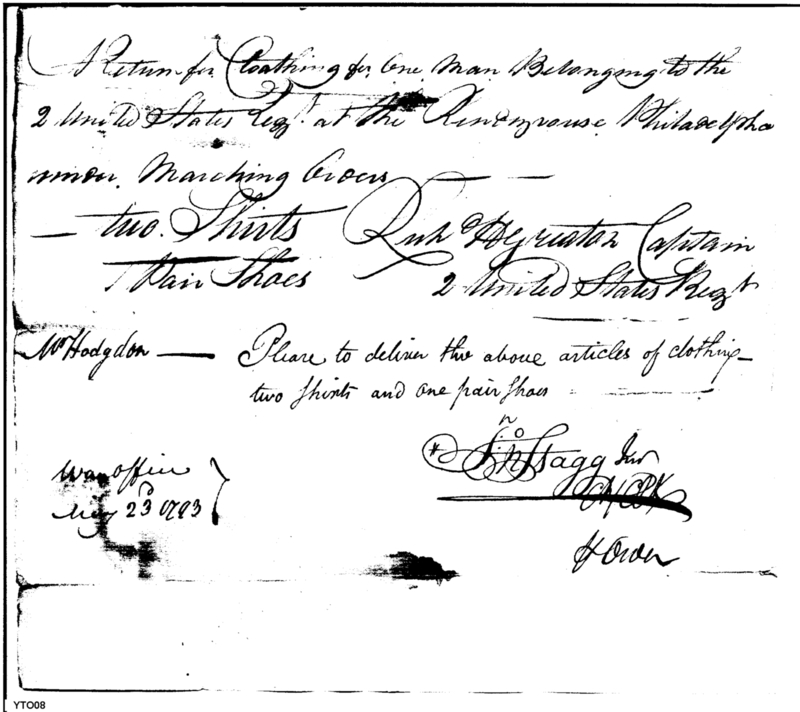 A Return for Cloathing for One Man Belonging to the
2 United States Regt. at the Rendezvouse Philadelpha
under Marching Orders
two Shirts
Richd H Greaton Captain
1 Pair Shoes
2 United States Regt
Mr Hodgdon
Please to deliver the above articles of clothing
two shirts and one pair shoes
Jno Stagg Junr
War office
May 23d 1793
YTO08